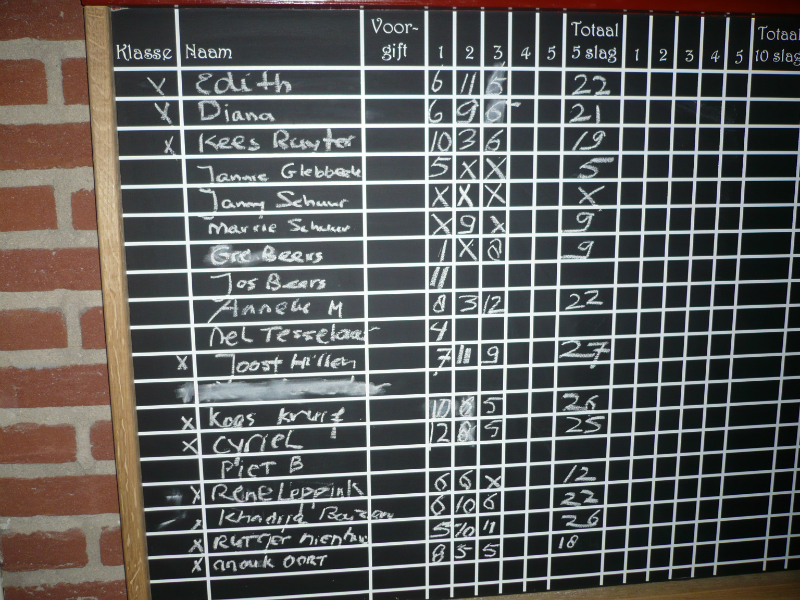 Klasse Naam Voor- gift 1 2 3 4 5 Totaal 5 slag 1 2 3 4 5 Totaal 10 slag
X Edith 6 11 5 22
X Diana 6 9 6 21
X Kees Ruyter 10 3 6 19
Jannie Glebbeek 5 X X 5
Janny Schuur X X X X
Marrie Schuur X 9 X 9
Gre Beers 1 X 8 9
Jos Beers 11
Anneke M 8 3 12 22
Nel Tesselaar 4
X Joost Hillen 7 11 9 27
X Koos Kruif 10 8 5 26
X Cyriel 12 8 5 25
Piet B
X Rene Leppink 6 6 X 12
X Khadija 6 10 6 22
X Rutger 5 10 11 26
X Anouk Oort 8 5 5 18